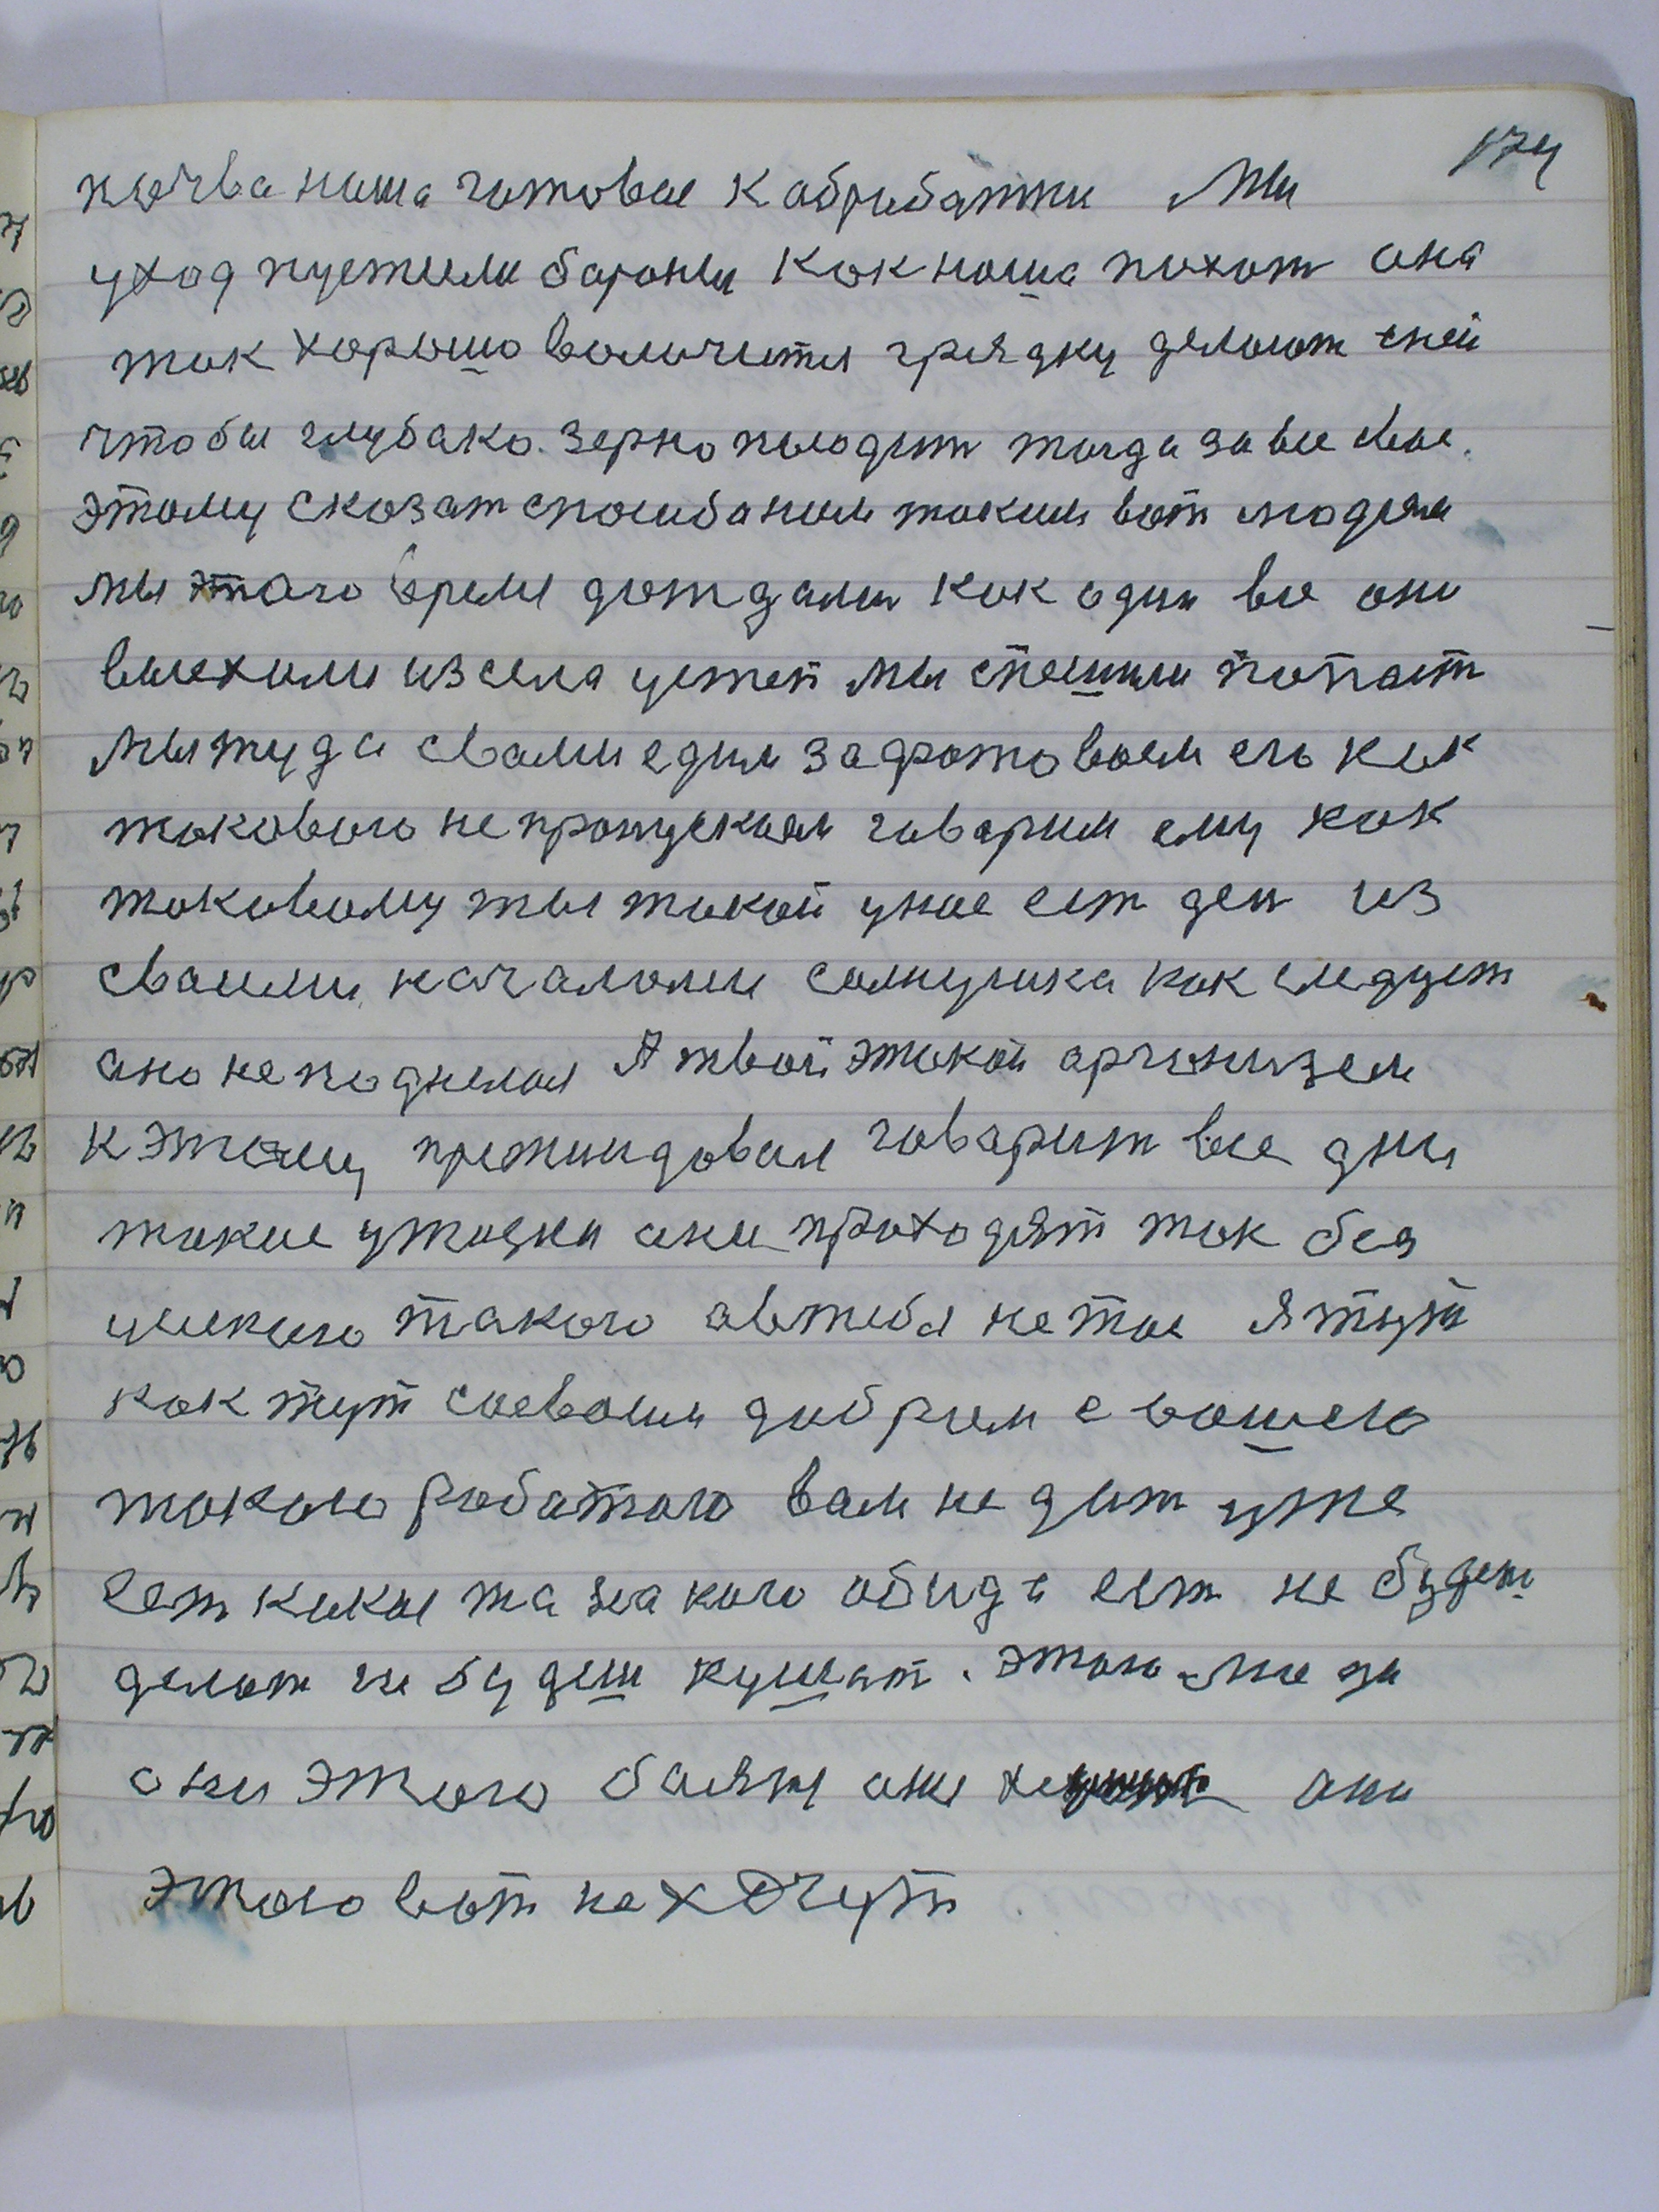 174
почва наша готовае к абрибатки Мы
уход пустили бароны как наша пахат она
так хорошо валичится грядку делают сней
чтобы глубако. зерно поюдит тагда завсе свае.
этаму сказат спасиба ним таким вот людям
мы этаго время дождалис как один все они
выехали из села устеп мы спешили попаст
мы туда свами едим задротоваем его как
таковога не пропускаем гаварим ему как
таковаму ты такой унас ест ден из
сваими началами солнушка как следует
ано не поднелас А твой этакой арганизем
к этаму претиндовал гаварит все дни
такие утодни ани проходят так без
усикаго такого автебя не тое я тут
как тут совсеми добрам с вашего
такого работаго вам не дат уже
ест какае та на кого обида ест не будеш
делат не будеш кушат. этого мога
они этого баятся они не они
этого вот не хочут